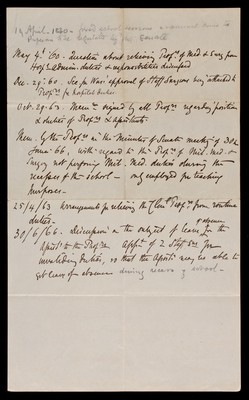 14 April 1860 -
May 4th '60. Question about relieving Profrs. of Med & Surg from
Hospl. administn. duties & responsibilities discussed
Dec. 29. 60. Sec for War's approval of Staff Surgeons being attached to
Profrs. for hospital duties
Oct. 29. 62. Memm. signed by all Profrs. regarding position
& duties of Profrs. & Assistants
Mem. by the Profrs. in the Minutes of Senate meetg of 30th
June '66, with regard to the Profrs. of Mil. Med. &
Surgery not performing Mil. Med. duties during the
recesses of the school - only employed for teaching
purposes.
25/4/63 Arrangements for relieving the Clinl. Profrs. from routine
duties.
30/6/66. Discussion on the subject of leave for the
Assists. to the Profrs. Appt. of 2 Staff Surgs for
invaliding duties, so that the Assists. may be able to
get leave of absence during recess of school -